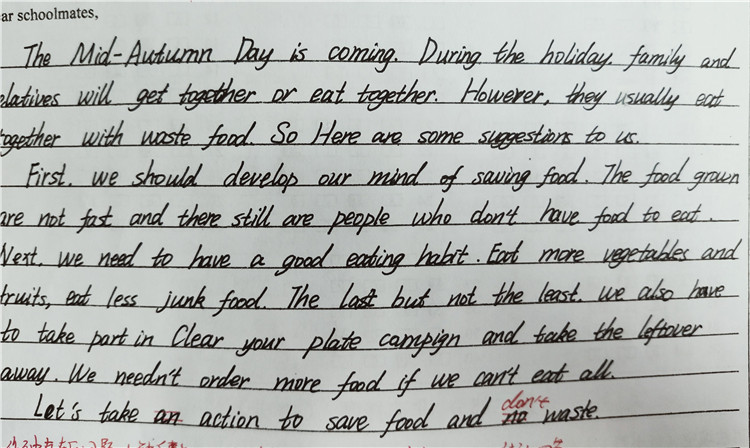 ar schoolmates,
The Mid-Autumn Day is coming. During the holiday, family and
elatives will get together or eat together. However, they usually eat
ogether with waste food. So Here are some suggestions to us.
First, we should develop our mind of saving food. The food grown
are not fast and there still are people who don't have food to eat.
Next, we need to have a good eating habit. Eat more vegetables and
fruits, eat less junk food. The last but not the least, we also have
to take part in Clear your plate campign and take the leftover
away. We needn't order more food if we can't eat all.
don't
Let's take an action to save food and no waste.